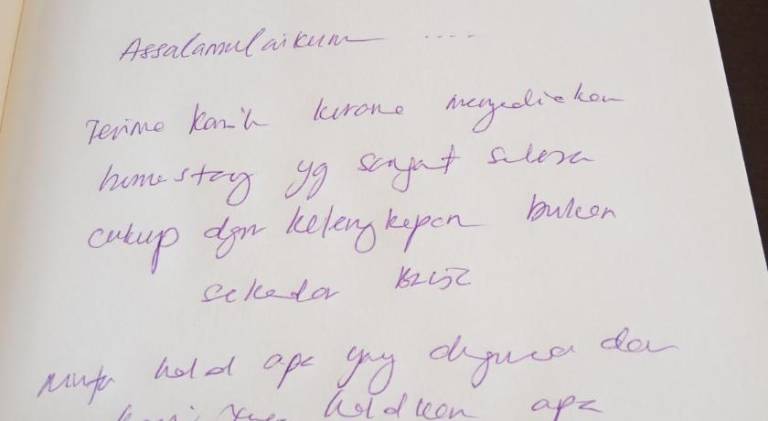 Assalamulaikum ....
Terima kasih kerana menyediakan
homestay yg sangat selesa
cukup dgn kelengkapan bukan
sekadar
halal apa yang diguna dan
kami halalkan apa